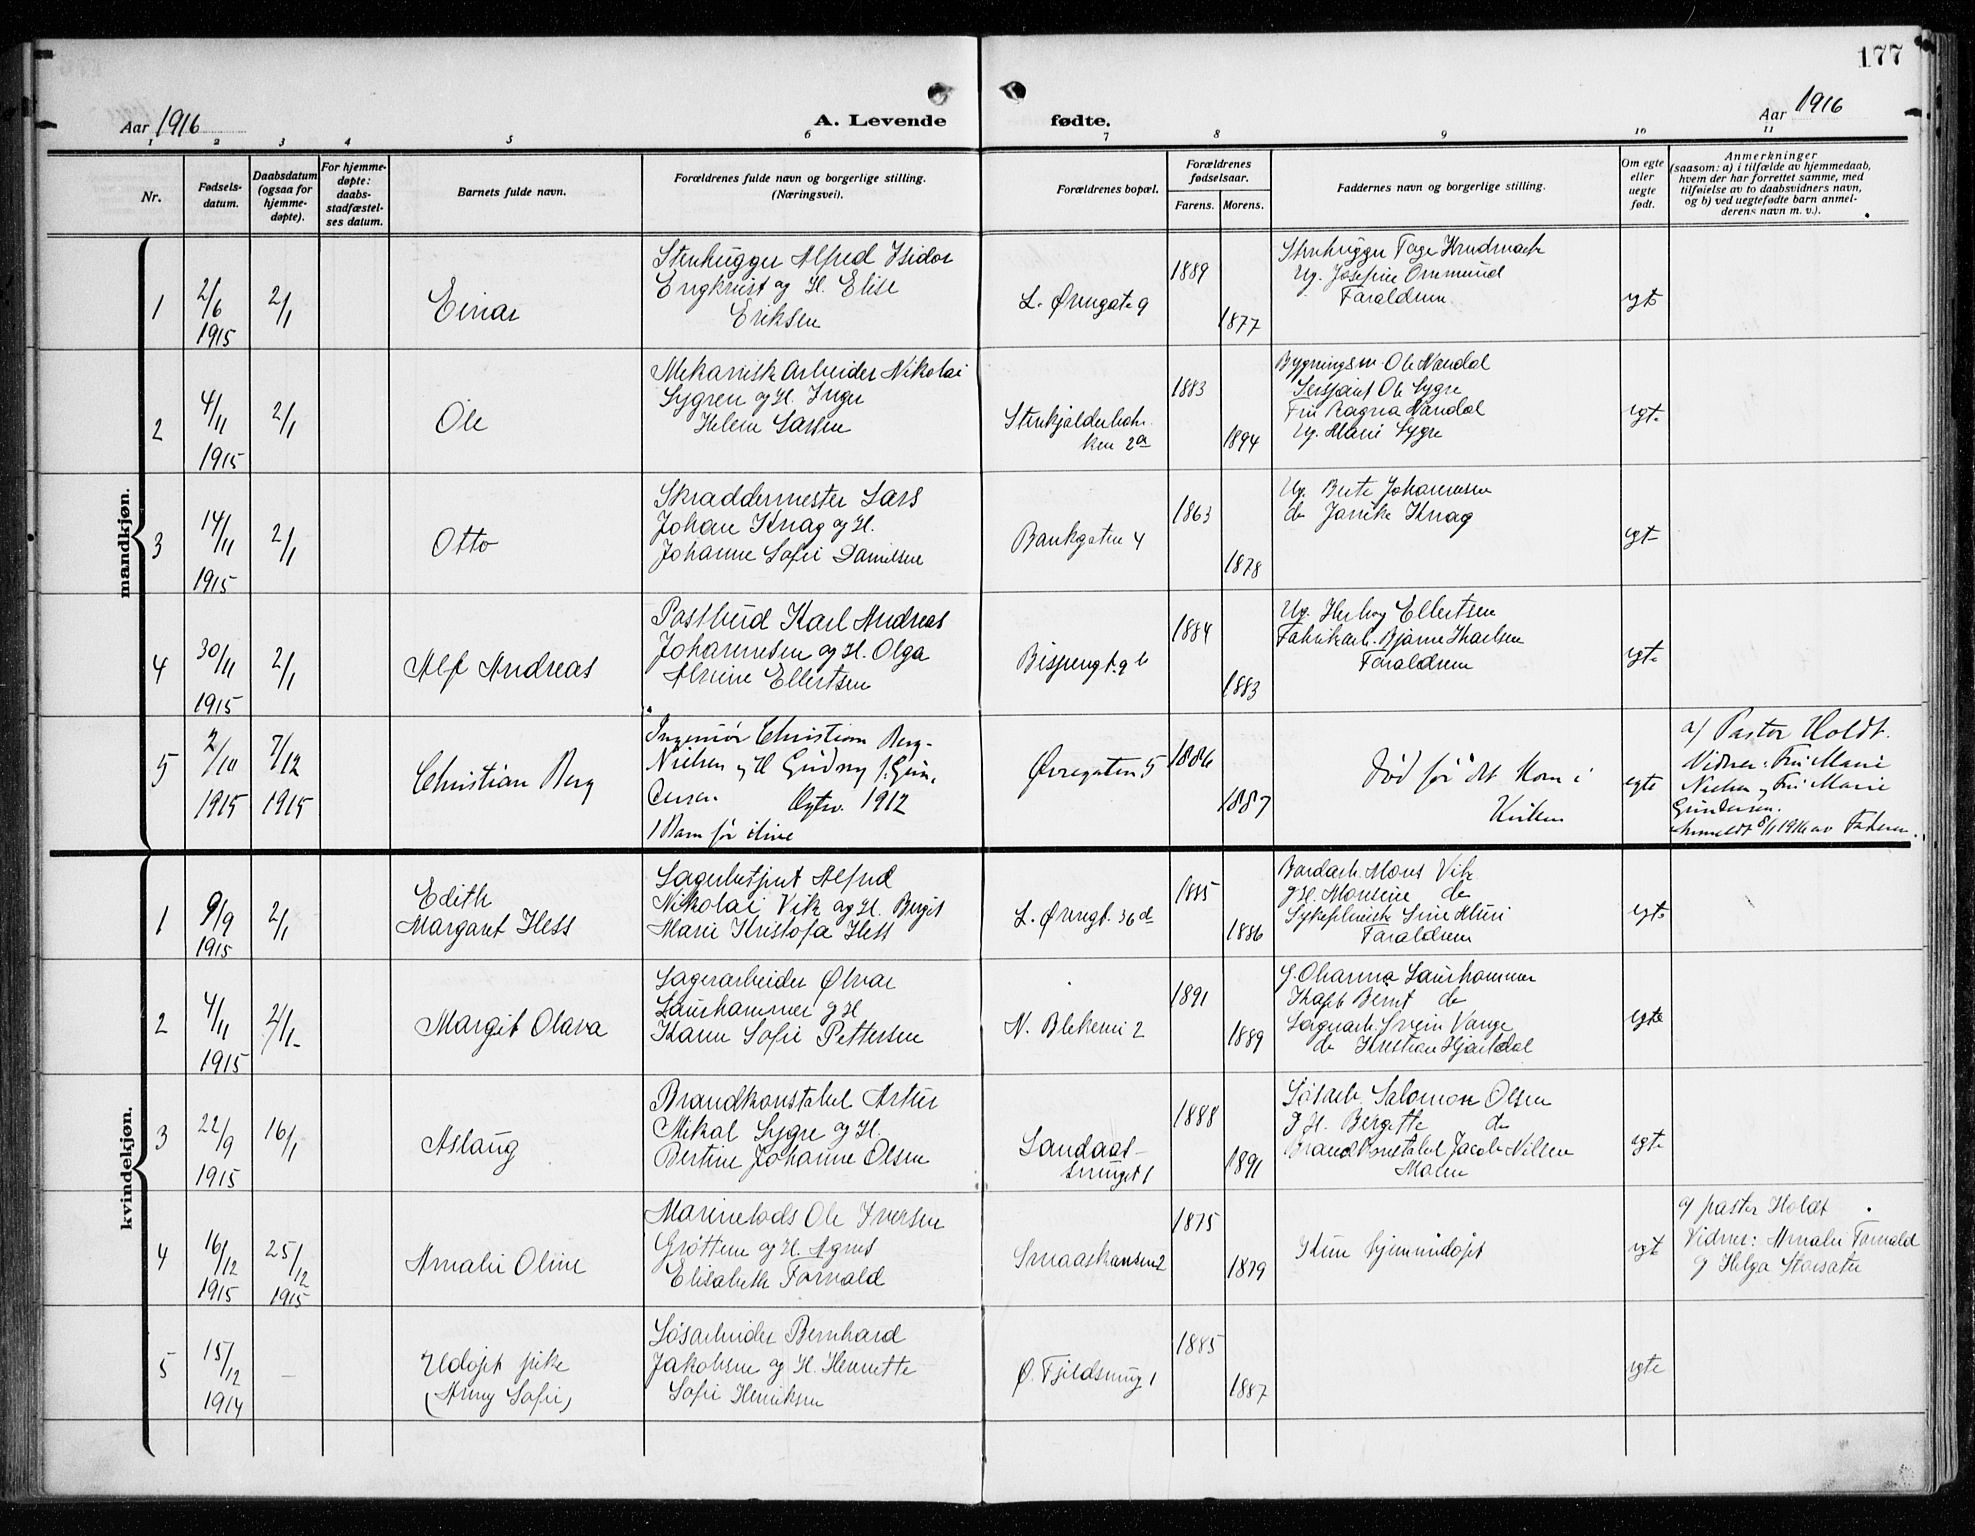 177
Aar 1916
A. Levende fødte.
Aar 1916
1 2 3 4 5 6 7 8 9 10 11
Nr.
Fødsels-
datum.
Daabsdatum
(ogsaa for
hjemme-
døpte).
For hjemme-
døpte:
daabs-
stadfæstel-
ses datum.
Barnets fulde navn.
Forældrenes fulde navn og borgerlige stilling.
(Næringsvei).
Forældrenes bopæl.
Forældrenes
fødselsaar.
Farens. Morens.
Faddernes navn og borgerlige stilling.
Om egte
eller
uegte
født.
Anmerkninger
(saasom: a) i tilfælde av hjemmedaab,
hvem der har forrettet samme, med
tilføielse av to daabsvidners navn,
og b) ved uegtefødte barn anmel-
derens navn m. v.).
mandkjøn.
1
2/6
1915
2/1
Einar
Stenhugger Alfred Isidor
Engkvist og H. Elise
Eriksen
L. Øvregate 9
1889
1877
Stenhugger Tage
Ug. Josefine
Forældrene
egte
2
4/11
1915
2/1
Ole
Mekanisk Arbeider Nikolai
Sygren og H. Inger
Helene Larsen
Stenkjelderbak-
ken 2a
1883
1894
Bygningsm. Ole Nandal
Sersjant Ole Sygre
Fru Ragna Nandal
Ug. Marie Sygre
egte
3
14/11
1915
2/1
Otto
Skræddermester Lars
Johan Knag og H.
Johanne Sofie Danielsen
Bankgaten 4
1863
1878
Ug. Berte Johannesen
do Janike Knag
egte
4
30/11
1915
2/1
Alf Andreas
Postbud Karl Andreas
Johannesen og H. Olga
Alvine Ellertsen
Bispengt. 9 b
1884
1883
Ug. Herborg Ellertsen
Fabrikarb. Bjarne Karlsen
Forældrene
egte
5
2/10
1915
7/12
1915
Christian Berg
Ingeniør Christian Berg-
Nielsen og H Gudny f. Gun-
dersen Egtev. 1912
1 Barn før i live
Øvregaten 5
1886
1887
Død før det kom i
Kirken
egte
a) Pastor Holdt.
Vidner: Fru Marie
Nielsen og Fru Marie
Gundersen.
Anmeldt 8/1 1916 av Faderen.
kvindekjøn.
1
9/9
1915
2/1
Edith
Margaret Hess
Lagerbetjent Alfred
Nikolai Vik og H. Bergit
Marie Kristofa Hess
L. Øvregt. 36 d
1885
1886
Bordarb. Mons Vik
g. H. Monsine do
Sykepleiersk.
Forældrene
egte
2
4/11
1915
2/1
Margit Olava
Lagerarbeider Ølvar
Laurhammer og H
Karen Sofie Pettersen
N. Blekevei 2
1891
1889
G. Ohanna Laurhammer
Kapt. Bernt do
Lagerarb. Svein Vange
do Kristian Hjarldal
egte
3
22/9
1915
16/1
Aslaug
Brandkonstabel Artur
Mikal Sygre og H.
Bertine Johanne Olsen
Sandaas-
smuget 1
1888
1891
Løsarb. Salomon Olsen
g. H. Bergette do
Brandkonstabel Jacob Nilsen
Moren
egte
4
16/12
1915
25/12
1915
Amalie Oline
Marinelods Ole Iversen
Grotten og H. Agnes
Elisabeth Fornald
Smaaskansen 2
1875
1879
Kun hjemmedøpt
egt
a) pastor Holdt
Vidner: Amalie Fornald
og Helga Storsæter
5
15/12
1914
—
Udøpt pike
(Anny Sofie)
Løsarbeider Bernhard
Jakobsen og H. Henriette
Sofie Henriksen
Ø. Fjeldsmug 1
1885
1887
egte